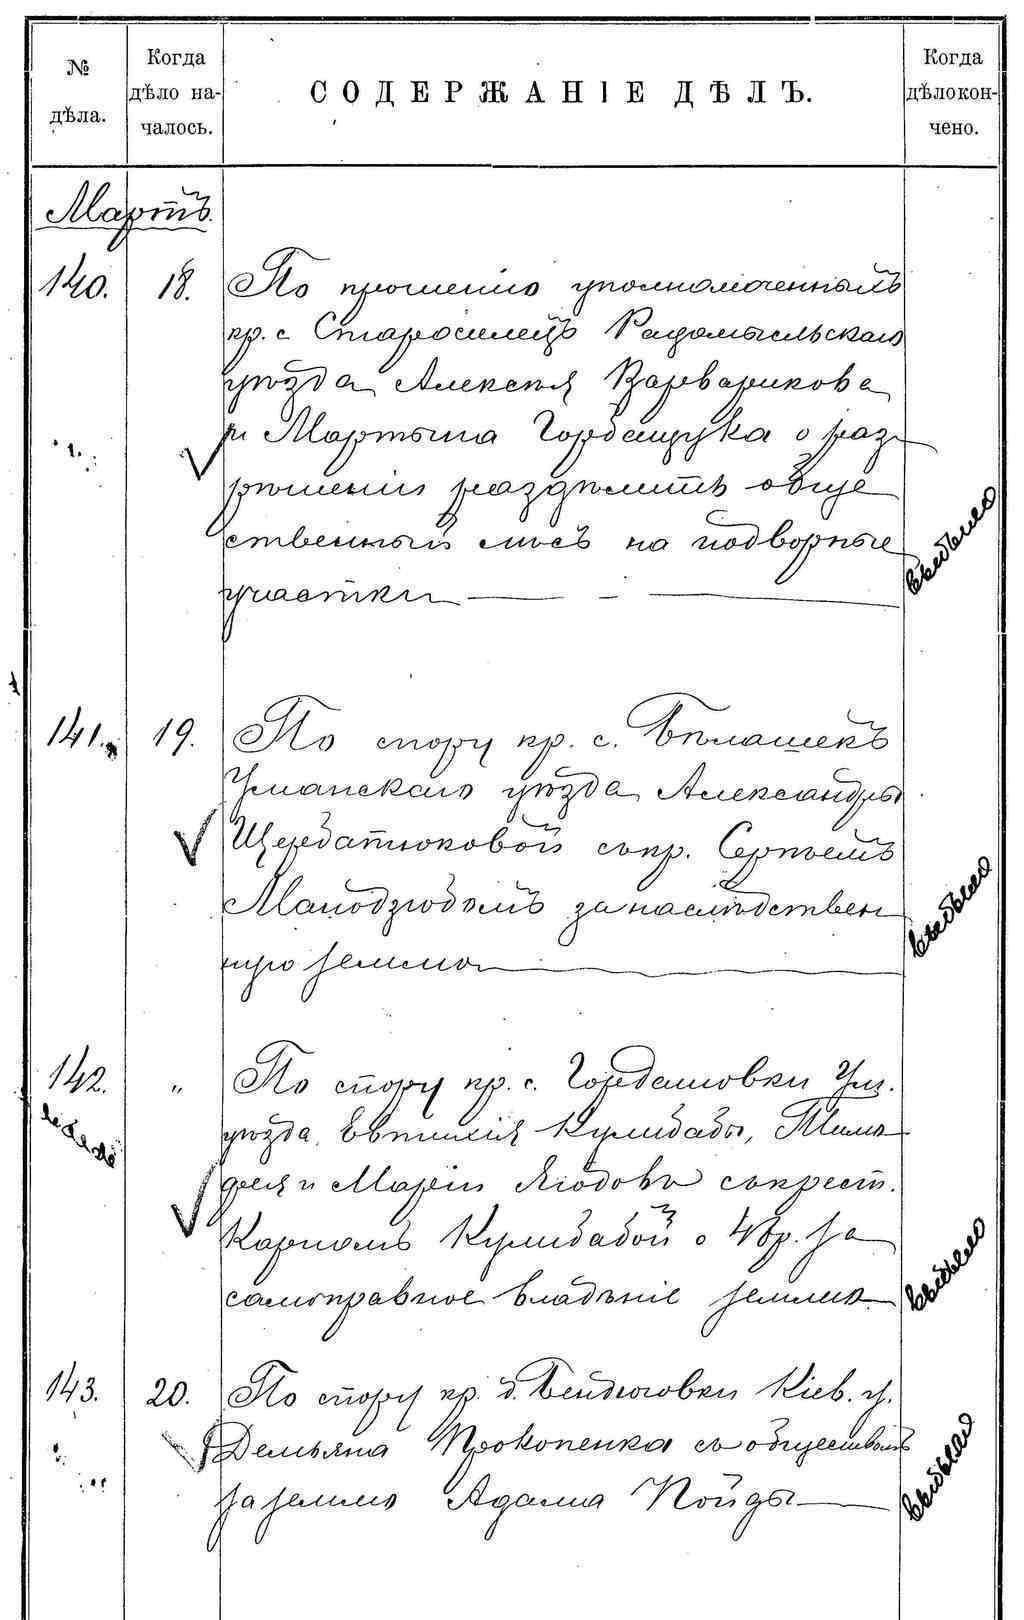 № дѣла.
Когда дѣло на-
чалось.
СОДЕРЖАНІЕ ДѢЛЪ.
Когда
дѣло кон-
чено.
Мартъ.
140. 18. По прошенію уполномоченныхъ
кр. с Староселецъ Радомысльскаго
уѣзда Алексѣя Варварикова
и Мартына Горбащука о раз
рѣшеніи раздѣлить обще
ственный лѣсъ на подворные
участки
выбыло
141. 19. По спору кр. с. Бѣлашекъ
Уманскаго уѣзда Александры
Щербатюковой съ кр. Сергѣемъ
за наслѣдствен
ную землю
выбыло
142. " По спору кр. с. Гордашовки Ум.
уѣзда, Евтихія Кулибабы,
и Маріи съ крест.
Карпомъ Кулибабой о 4 др. за
самоправное владѣніе землею
выбыло
143. 20. По спору кр. д. Бендюговки Кіев. у.
Демьяна Прокопенка съ обществомъ
за землю Адама Пойды
выбыло